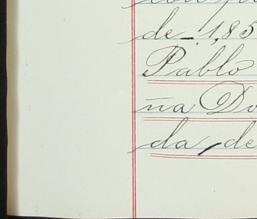 de 1,85
Pablo
ña Do
da, de